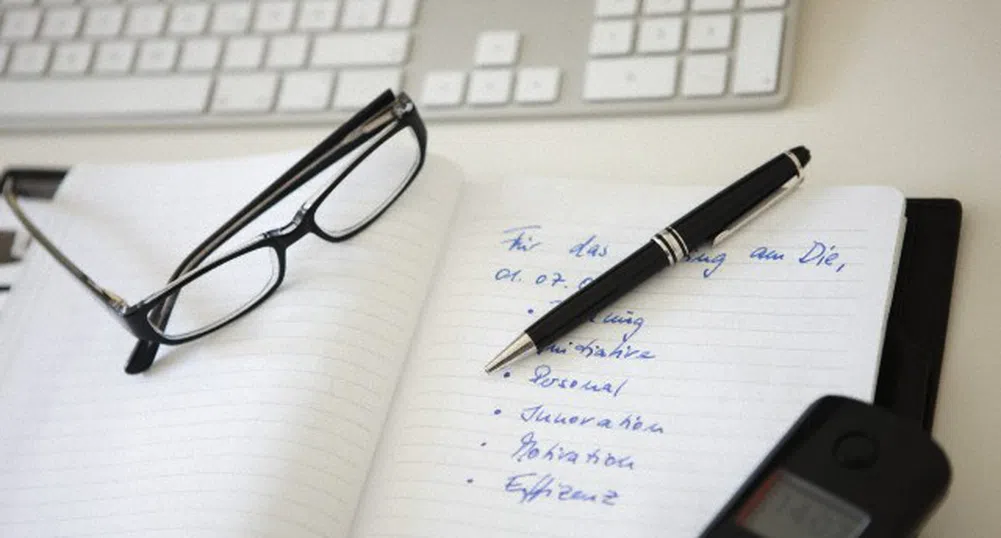 Für das am Die,
01.07.
•
• Initiative
• Personal
• Innovation
• Motivation
• Effizenz